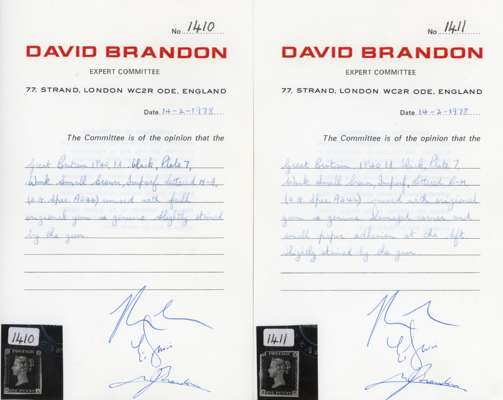 No. 1410
DAVID BRANDON
EXPERT COMMITTEE
77, STRAND, LONDON WC2R ODE, ENGLAND
Date 14-2-1978
The Committee is of the opinion that the
Great Britain 1840 1d. black, Plate 7,
Wmk Small Crown, Imperf, lettered
(S.G. Spec AS46) unused with full
original gum is genuine slightly stained
by the gum.
1410
No. 1411
DAVID BRANDON
EXPERT COMMITTEE
77, STRAND, LONDON WC2R ODE, ENGLAND
Date 14-2-1978
The Committee is of the opinion that the
Great Britain 1840 1d black, Plate 7
Wmk Small Crown, Imperf, lettered
unused with original
gum is genuine damaged corner and
small paper adhesion at the left
slightly stained by the gum
1411